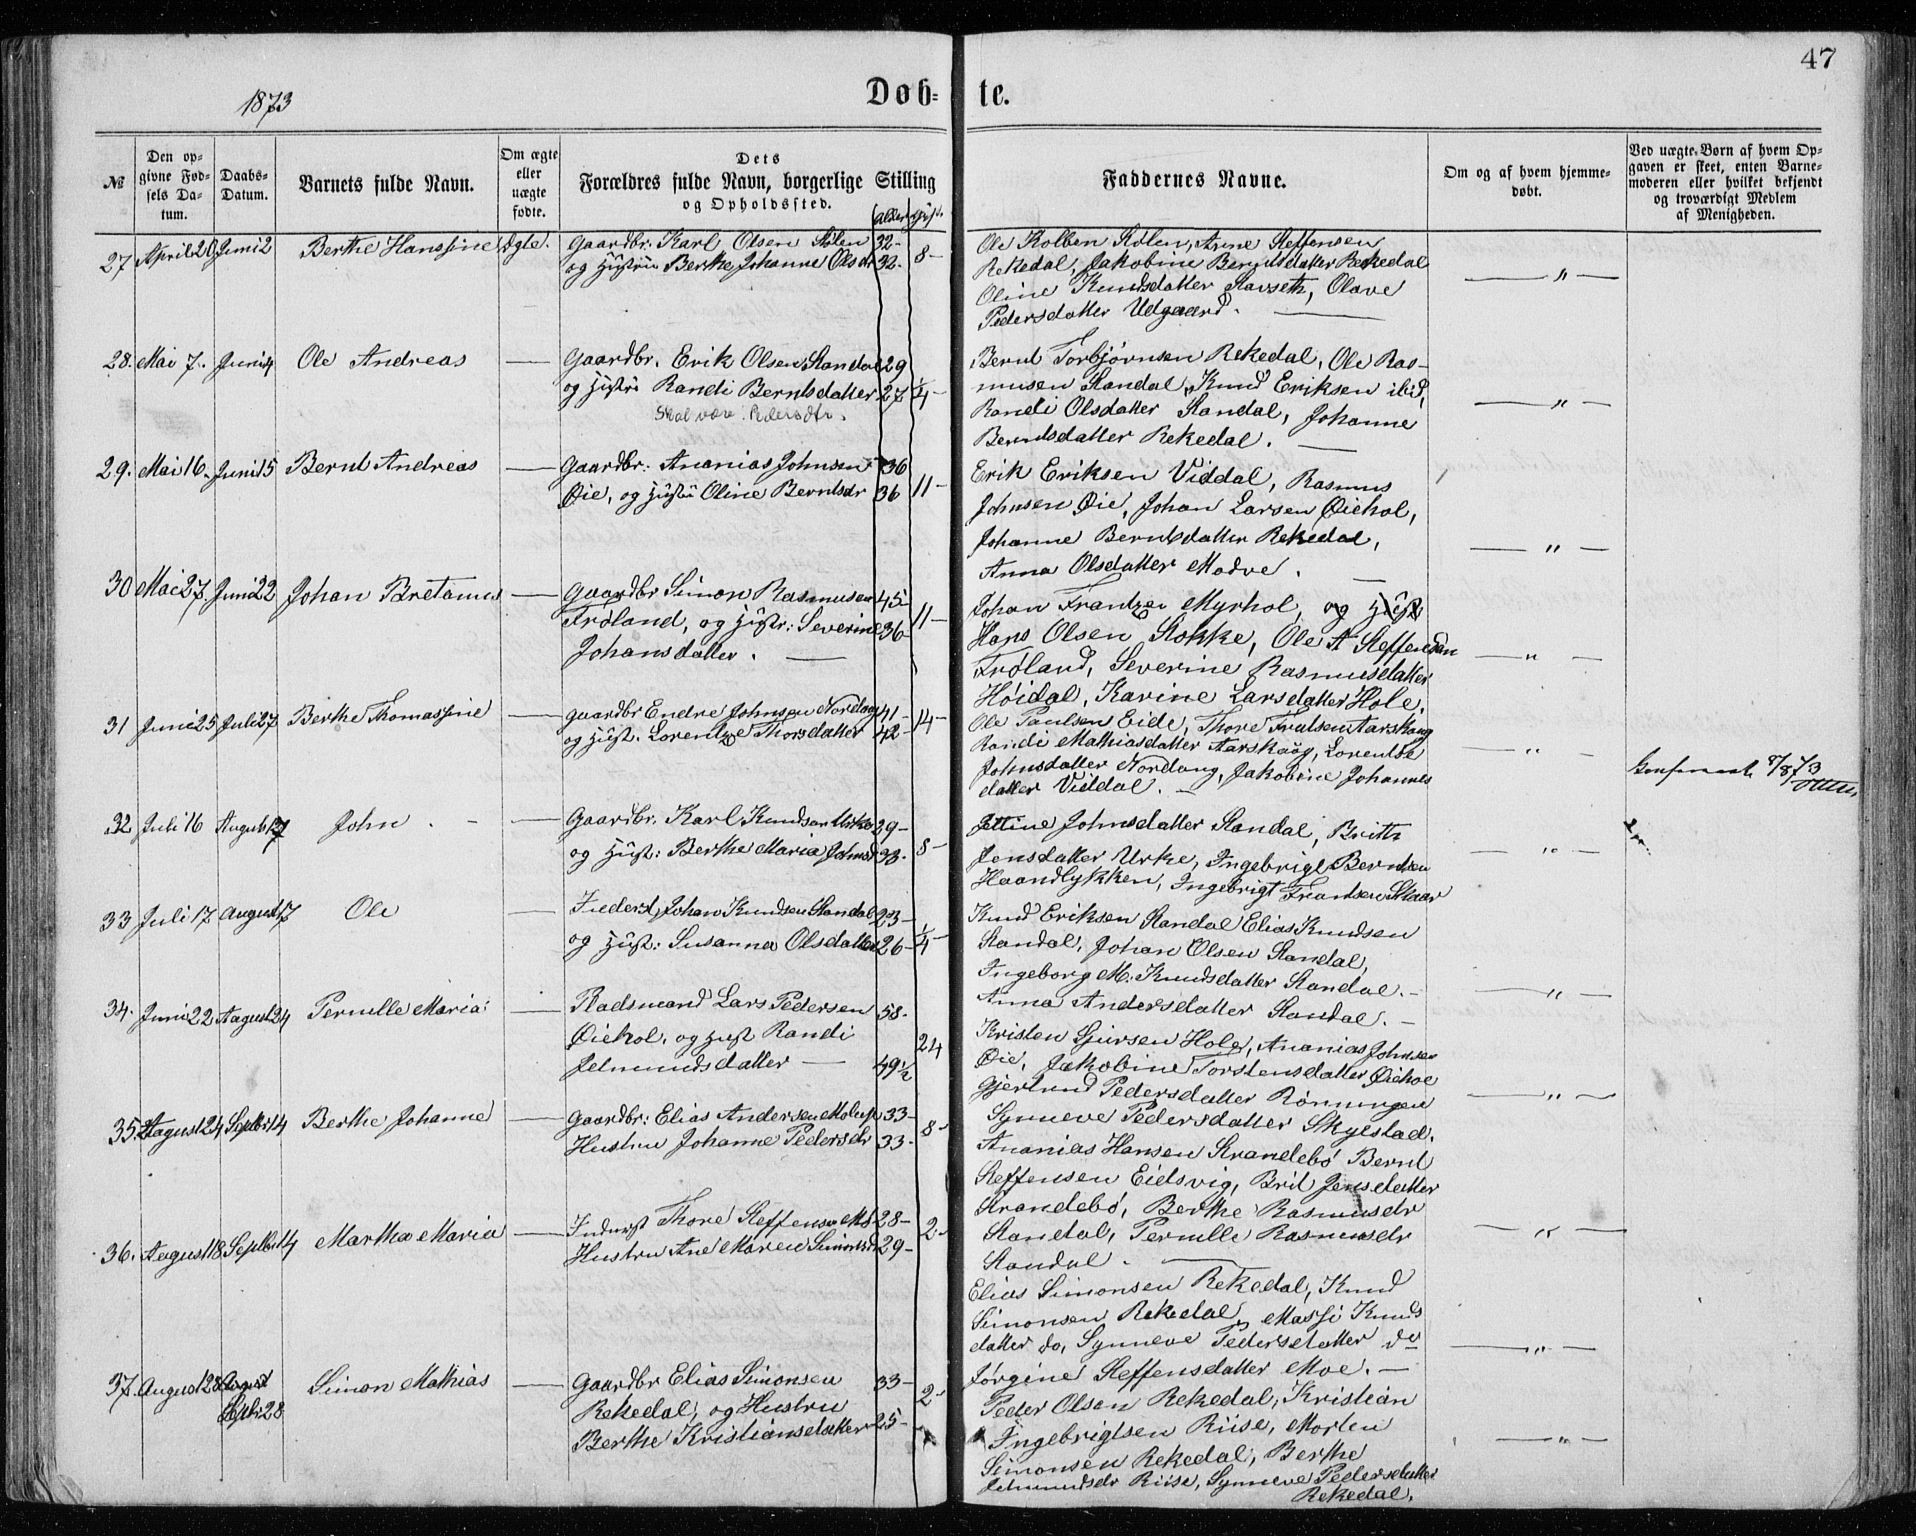 47
1873
Døb-
te.
№
Den op-
givne Fød-
sels Da-
tum.
Daabs-
Datum.
Barnets fulde Navn.
Om ægte
eller
uægte
fødte.
Dets
Forældres fulde Navn, borgerlige Stilling
og Opholdssted.
Alder
Faddernes Navne.
Om og af hvem hjemme-
døbt.
Ved uægte Børn af hvem Op-
gaven er skeet, enten Barne-
moderen eller hvilket bekjendt
og troværdigt Medlem
af Menigheden.
27 April 20 Juni 2 Berthe Hansine ægte. Gaardbr: Karl Olsen Stølen 32- 8-
og Hustru Berthe Johanne Olsdr 32.
Ole Kolben Stølen, Arne Steffensen
Rekedal, Jakobine Berndsdatter Rekedal
Oline Knudsdatter Stavseth, Olave
Pedersdatter Udgaard.
— " —
28. Mai 7. Juni 4 Ole Andreas — Gaardbr. Erik Olsen Standal 29
og Hustru Randi Berntsdatter 27 1/4-
Skal være: Pedersdtr.
Bernt Torbjørnsen Rekedal, Ole Ras-
musen Standal, Knud Eriksen ibid,
Randi Olsdatter Standal, Johanne
Berndsdatter Rekedal.
— " —
29. Mai 16. Juni 15 Bernt Andreas — Gaardbr: Ananias Johnsen 36
Øie, og Hustru Oline Berntsdr 36 11-
Erik Eriksen Viddal, Rasmus
Johnsen Øie, Johan Larsen Øiehol,
Johanne Berntsdatter Rekedal,
Anna Olsdatter Modve.
— " —
30 Mai 27. Juni 22 Johan Bretanus — Gaardbr Simon Rasmusen 45-
Frøland, og Hustr: Severine 36- 11-
Johansdatter.
Johan Frantzen Myrhol, og Hust
Hans Olsen Stokke, Ole A Steffensen
Frøland, Severine Rasmusdatter
Høidal, Karine Larsdatter Hole.
— " —
31 Juni 25 Juli 27 Berthe Thomassine — Gaardbr Endre Johnsen Nordang 41- 14-
og Hust. Lorentze Thorsdatter 42-
Ole Paulsen Eide, Thore Trulsen Aarskaug
Randi Mathiasdatter Aarskaug, Lorentse
Johnsdatter Nordang, Jakobine Johannes
datter Viddal. —
— " —
8/8 73
32 Juli 16 August 17 John. — Gaardbr. Karl Knudsen Urke 39-
og Hust: Berthe Maria Johnsd 33. 8-
Jettine Johnsdatter Standal, Brith
Jensdatter Urke, Ingebrigt Berntsen
Haandlykken, Ingebrigt Frantsen Skaar
— " —
33 Juli 17 August 17 Ole — Inderst, Johan Knudsen Standal 23-
og Hust: Susanna Olsdatter 26- 1/4-
Knud Eriksen Standal Elias Knudsen
Standal, Johan Olsen Standal,
Ingeborg M. Knudsdatter Standal. —
Anna Andersdatter Standal. —
— " —
34. Juni 22 August 24 Pernille Maria — Pladsmand Lars Pedersen 58-
Øiehol, og Hust Randi 24
Jelmundsdatter — 49 1/2
Kristen Sjursen Hole, Ananias Johnsen
Øie, Jakobine Torstensdatter Øiehol
Gjertrud Pedersdatter Rønningen
Synneve Pedersdatter Skylstad.
— " —
35 August 24 Septbr 14 Berthe Johanne — Gaardbr: Elias Andersen 33- 8-
Hustru Johanne Pedersdr 33-
Ananias Hansen Strandebø Bernt
Steffensen Eidsvig, Brit Jensdatter
Strandebø, Berthe Rasmusdr
Standal, Pernille Rasmusdr
Standal.
— " —
36. August 18 Septbr 14 Martha Maria — Inderst Thore Steffensen 28- 2-
Hustru Ane Maren Simonsd 29-
Elias Simonsen Rekedal, Knud
Simonsen Rekedal, Massi Knuds
datter do, Synneve Pedersdatter do
Jørgine Steffensdatter Moe. —
— " —
37. August 28 August Simon Mathias — Gaardbr Elias Simonsen 33- 2-
Septbr 28 Rekedal, og Hustru
Berthe Kristiansdatter 25-
Peder Olsen Rekedal, Kristian
Ingebrigtsen Riise, Morten
Simonsen Rekedal, Berthe
Jelmundsdr Riise, Synneve Pedersdatter
Rekedal.
— " —